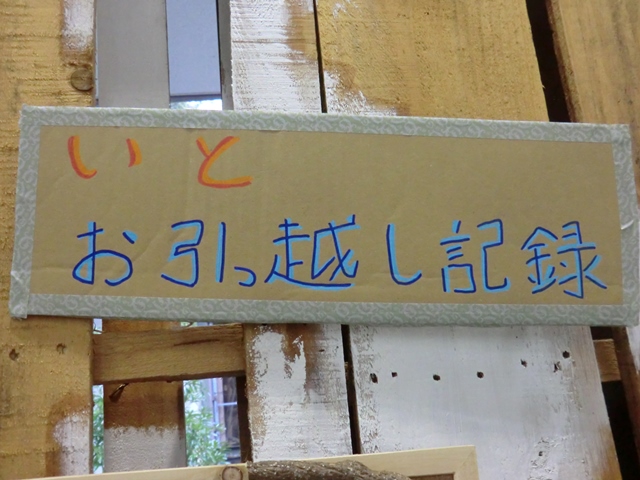 いと
お引っ越し記録